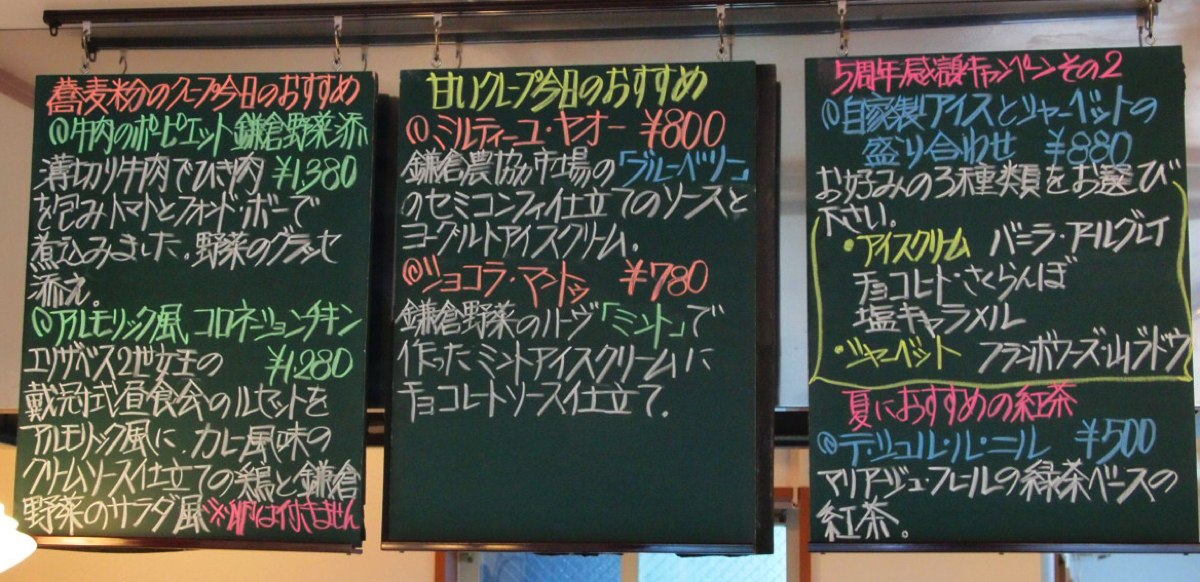 蕎麦粉のクレープ今日のおすすめ
①牛肉のポーピエット 鎌倉野菜添
薄切り牛肉でひき肉 ¥1,380
を包みトマトとフォンド・ボーで
煮込みました。野菜のグラッセ
添え。
①アルモリック風 コロネーションチキン
エリザベス2世女王の ¥1,280
戴冠式昼食会のルセットを
アルモリック風に、カレー風味の
クリームソース仕立ての鶏と鎌倉
野菜のサラダ風※卵は付きません
甘いクレープ今日のおすすめ
①ミルティーユ・ヤオー ¥800
鎌倉農協市場の「ブルーベリー」
のセミコンフィ仕立てのソースと
ヨーグルトアイスクリーム。
②ショコラ・マント ¥780
鎌倉野菜のハーヴ「ミント」で
作ったミントアイスクリームに
チョコレートソース仕立て。
5周年感謝キャンペーンその2
①自家製アイスとシャーベットの
盛り合わせ ¥880
お好みの3種類をお選び
下さい。
・アイスクリーム バニラ・アールグレイ
チョコレート・さくらんぼ
塩キャラメル
・シャーベット フランボワーズ・山ブドウ
夏におすすめの紅茶
①テ・シュル・ル・ニール ¥500
マリアージュ・フレールの緑茶ベースの
紅茶。